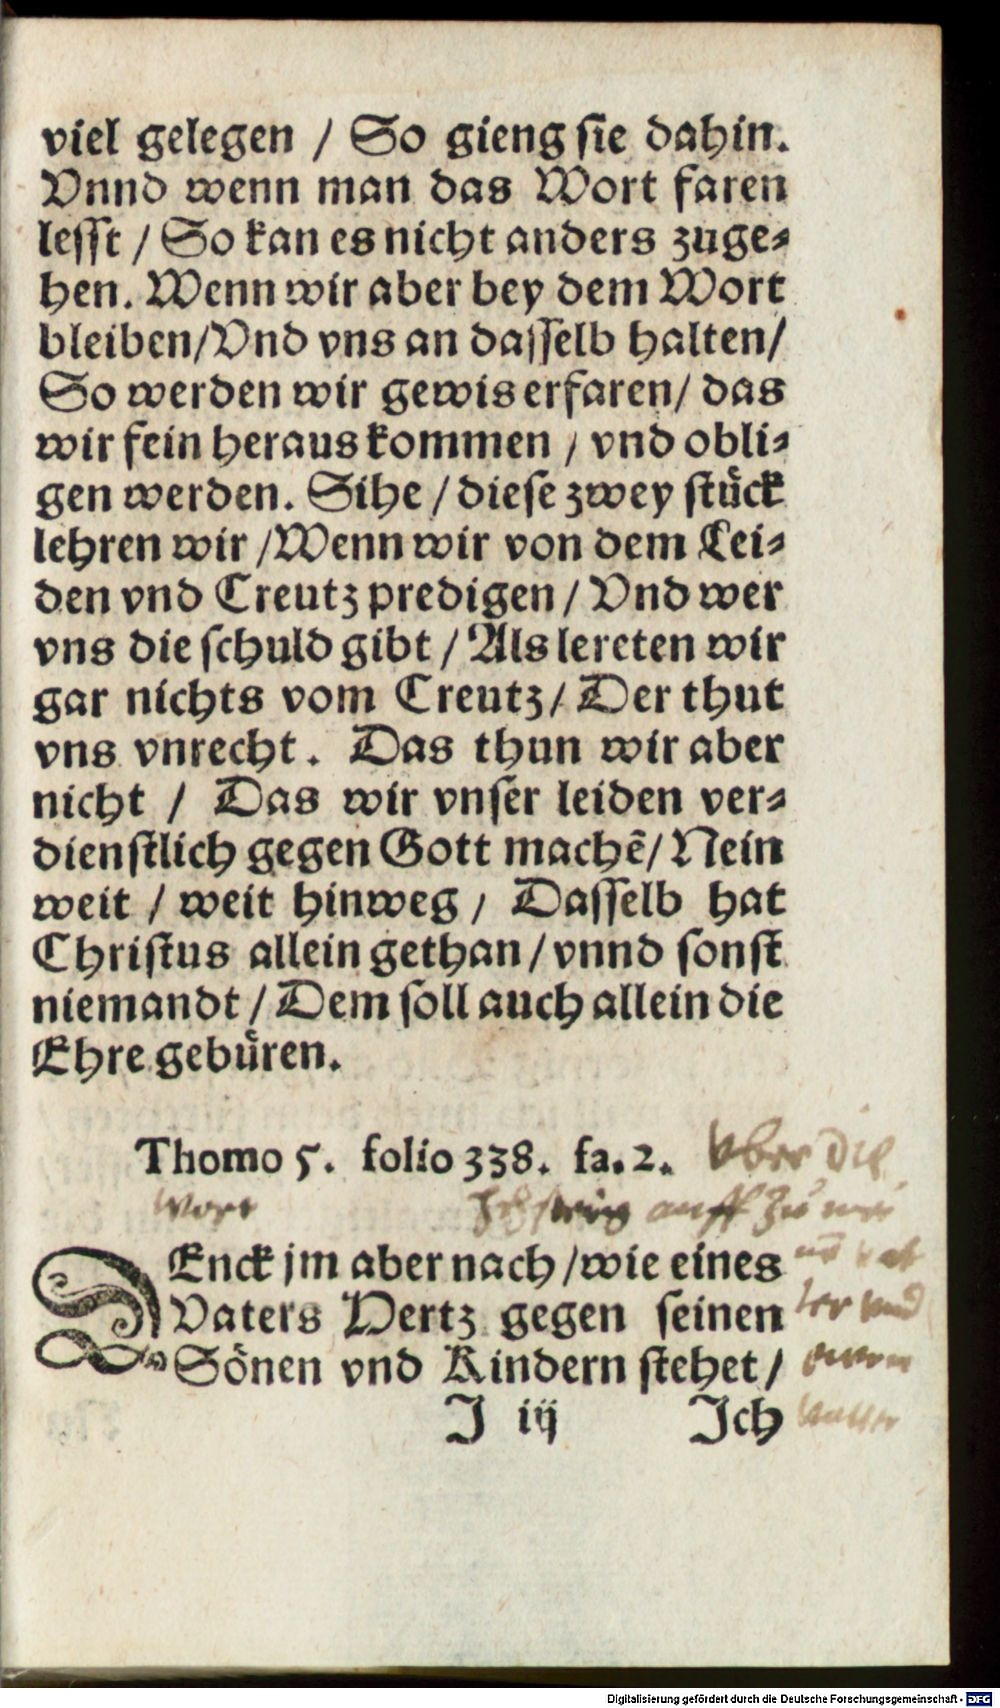 viel gelegen / So gieng sie dahin.
Vnnd wenn man das Wort faren
lesst / So kan es nicht anders zuge⸗
hen. Wenn wir aber bey dem Wort
bleiben/Vnd vns an dasselb halten/
So werden wir gewis erfaren/ das
wir fein heraus kommen / vnd obli⸗
gen werden. Sihe / diese zwey stuͤck
lehren wir /Wenn wir von dem Lei⸗
den vnd Creutz predigen / Vnd wer
vns die schuld gibt / Als lereten wir
gar nichts vom Creutz/ Der thut
vns vnrecht. Das thun wir aber
nicht / Das wir vnser leiden ver⸗
dienstlich gegen Gott machē/ Nein
weit / weit hinweg / Dasselb hat
Christus allein gethan / vnnd sonst
niemandt / Dem soll auch allein die
Ehre gebuͤren.
Thomo 5. folio 338. fa. 2. Vber die
Wort auff zu
DEnck jm aber nach /wie eines
Vaters Hertz gegen seinen
ter vnd
Soͤnen vnd Kindern stehet /
ewrn
J iij Jch
vatter
Digitalisierung gefördert durch die Deutsche Forschungsgemeinschaft - DFG